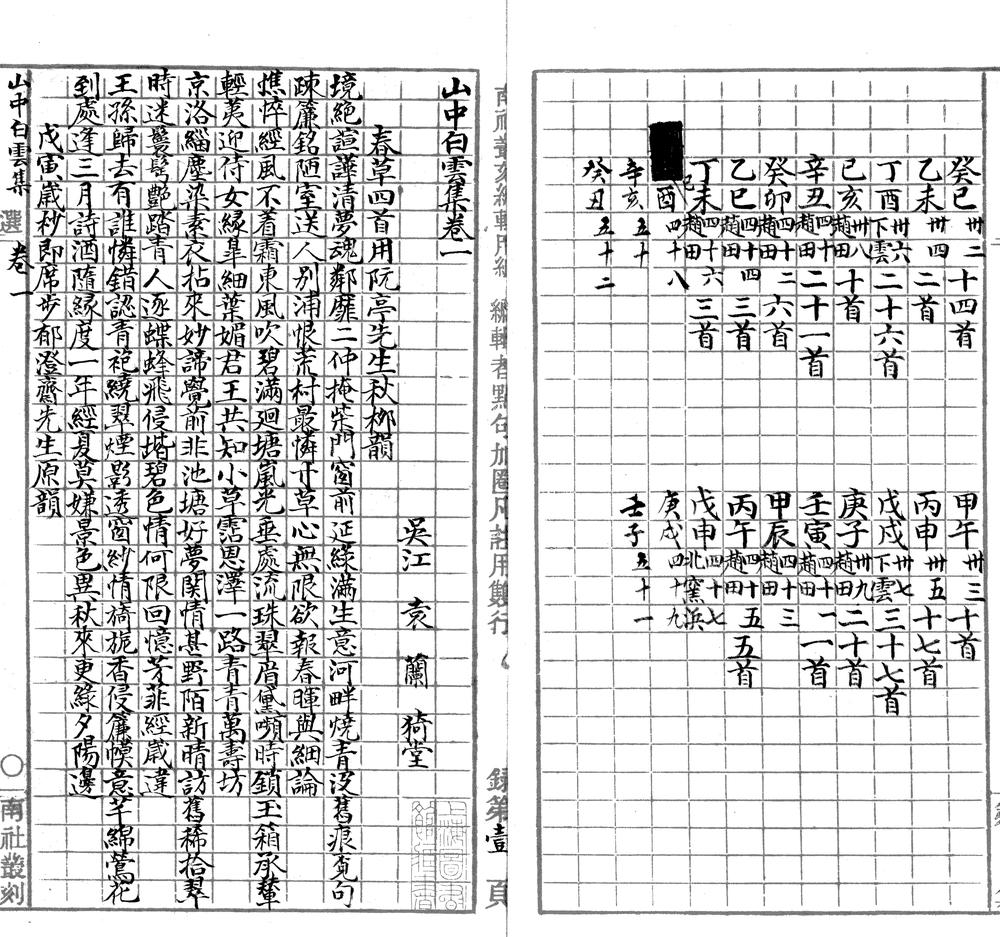 癸巳 卅二 十四首
乙未 卅四 二首
丁酉 卅六 下雲 二十六首
己亥 卅八 趙田 十首
辛丑 四十 趙田 二十一首
癸卯 四十二 趙田 六首
乙巳 四十四 趙田 三首
丁未 四十六 趙田 三首
己酉 四十八
辛亥 五十
癸丑 五十二
甲午 卅三 十首
丙申 卅五 十七首
戊戌 卅七 下雲 三十七首
庚子 卅九 趙田 二十首
壬寅 四十一 趙田 一首
甲辰 四十三 趙田
丙午 四十五 趙田 五首
戊申 四十七 北窰浜
庚戌 四十九
壬子 五十一
編輯者點句加圈凡註用雙行
錄第壹頁
山中白雲集卷一
吳江 袁蘭 猗堂
春草四首用阮亭先生秋柳韻
境絕諠譁清夢魂鄰靡二仲掩柴門窗前延綠滿生意河畔燒青沒舊痕覓句
疎簾銘陋室送人別浦恨荒村最憐寸草心無限欲報春暉與細論
憔悴經風不着霜東風吹碧滿迴塘嵐光垂處流珠翠眉黛嚬時鎖玉箱承輦
輕荑迎侍女緣臯細葉媚君王共知小草霑恩澤一路青青萬壽坊
京洛緇塵染素衣拈來妙諦覺前非池塘好夢関情甚野陌新晴訪舊稀拾翠
時迷鬟髩艷踏青人逐蝶蜂飛侵堦碧色情何限回憶芳菲經歲違
王孫歸去有誰憐錯認青袍繞翠煙影透窗紗情旖旎香侵簾幙意芊綿鶯花
到處逢三月詩酒隨緣度一年經夏莫嫌景色異秋來更綠夕陽邊
戊寅歲杪即席步郁澄齋先生原韻
山中白雲集 選 卷一
南社叢刻